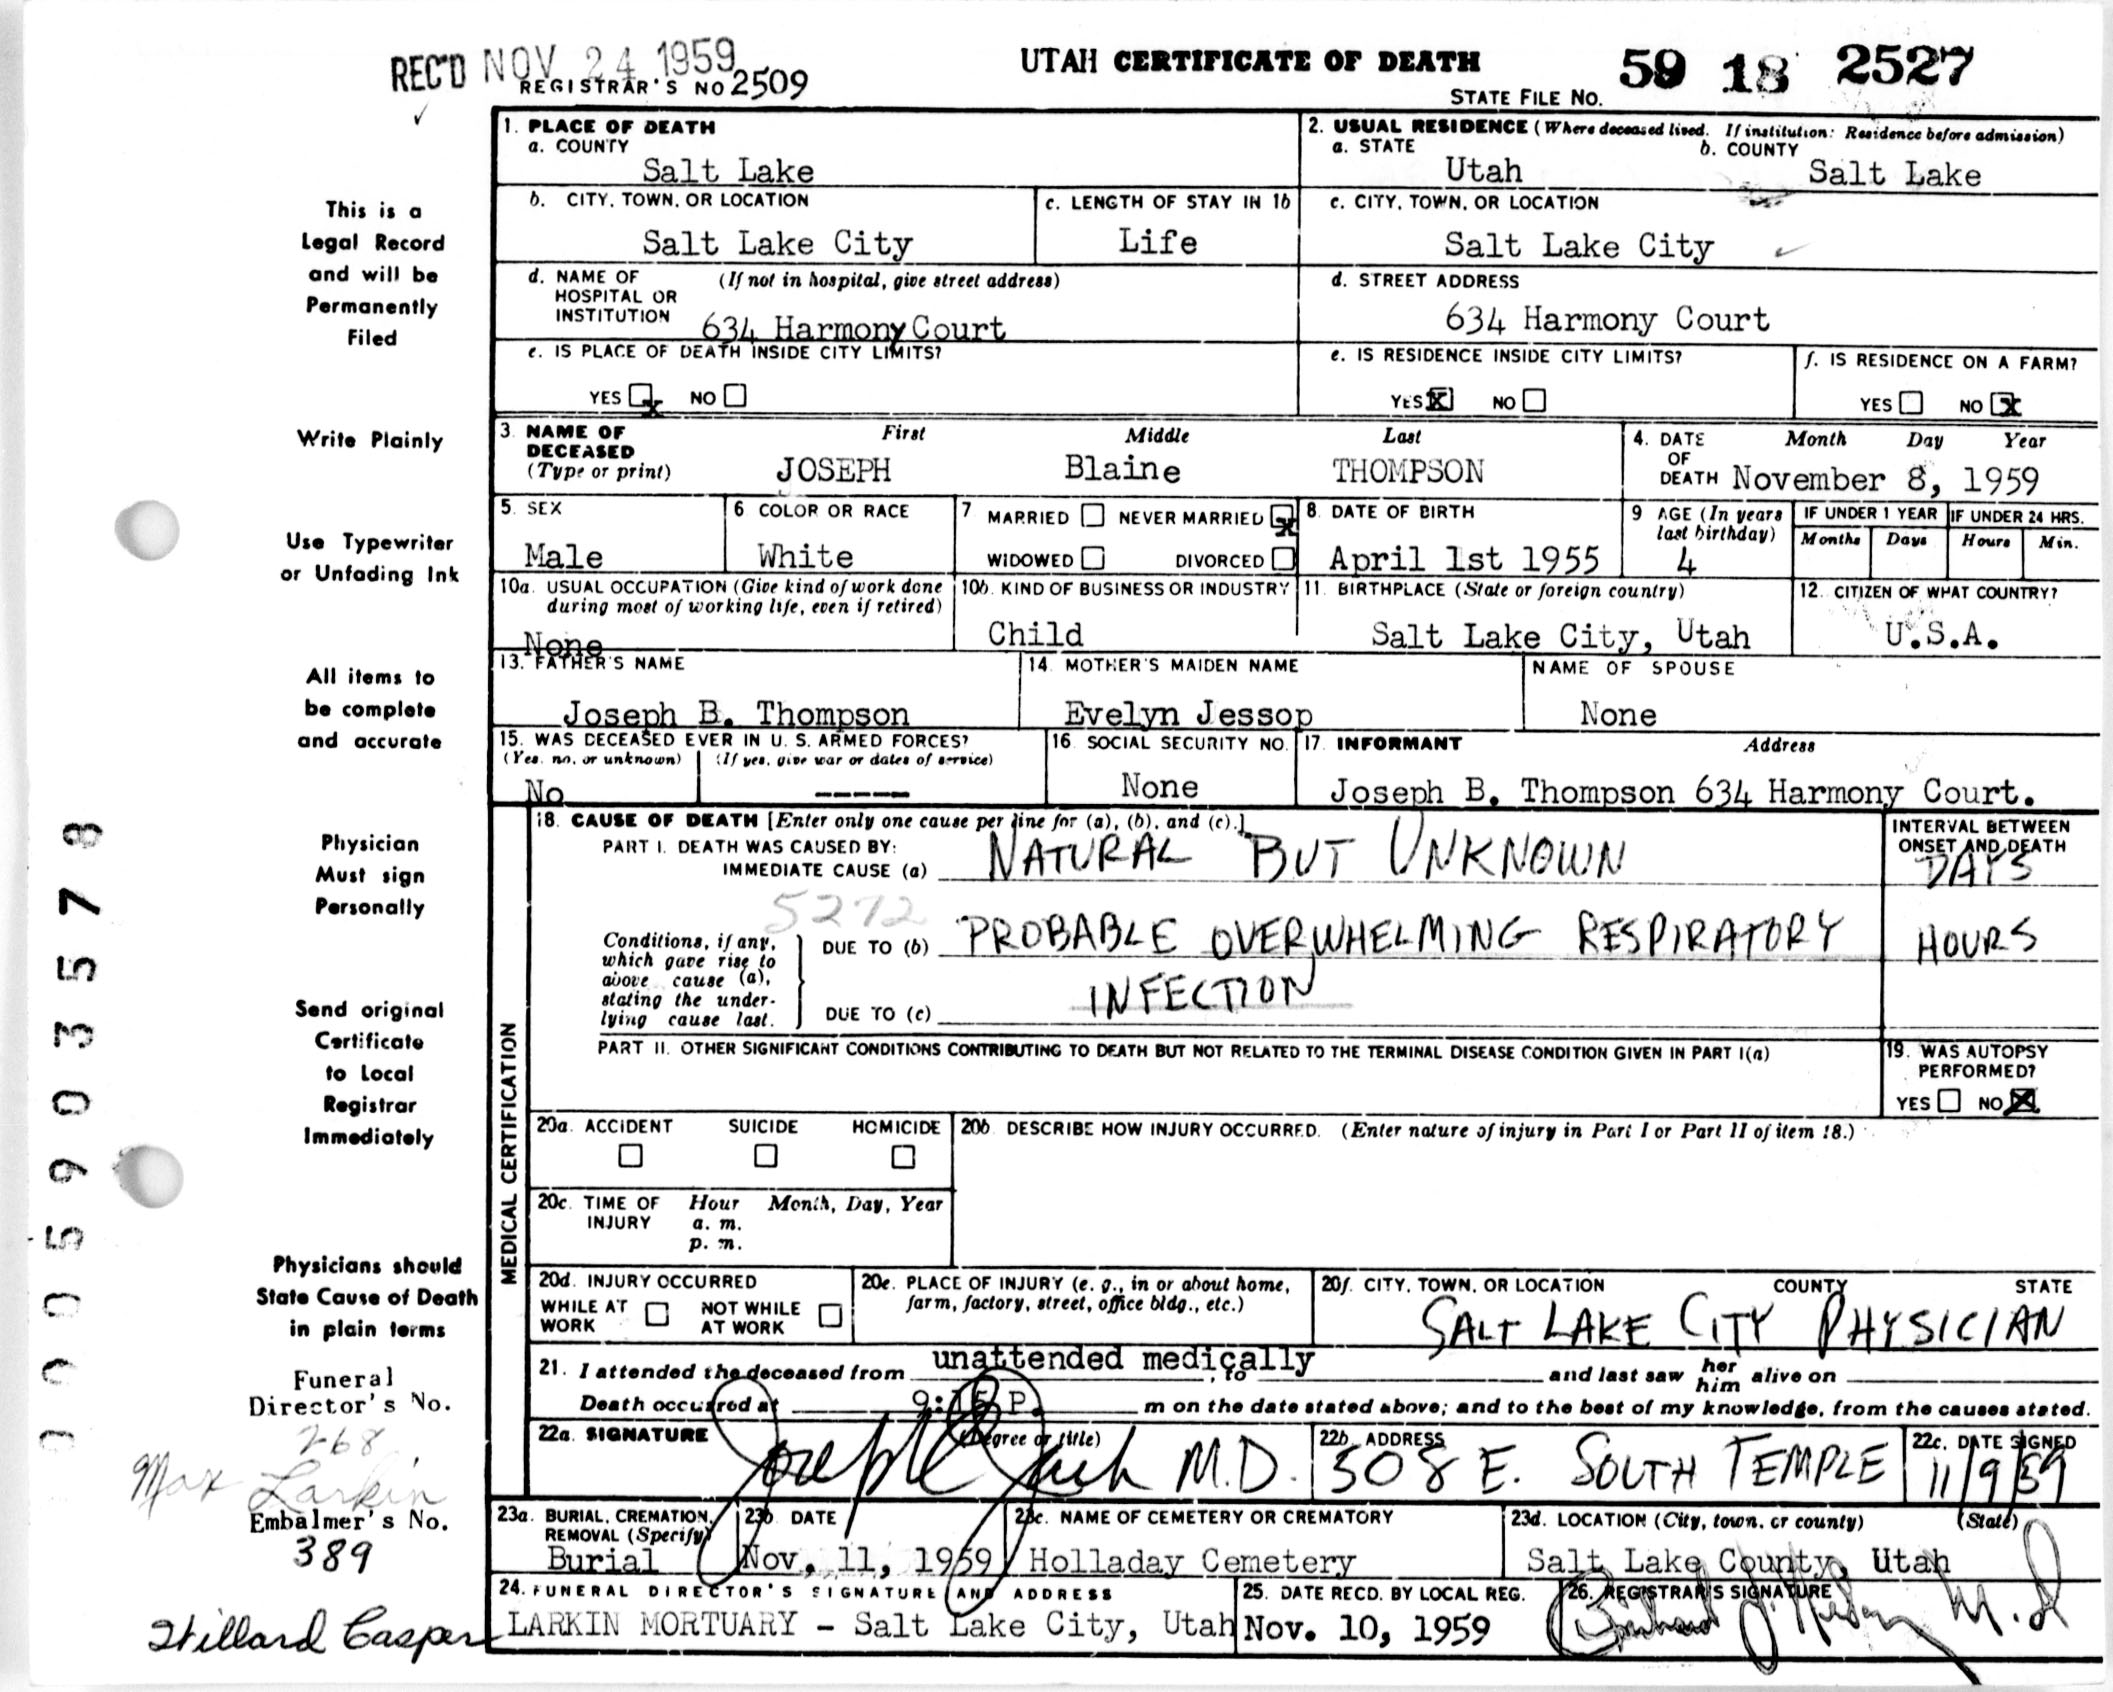 REC'D NOV 24 1959
REGISTRAR'S NO 2509
UTAH CERTIFICATE OF DEATH
STATE FILE NO. 59 18 2527
This is a
Legal Record
and will be
Permanently
Filed
Write Plainly
Use Typewriter
or Unfading Ink
All items to
be complete
and accurate
Physician
Must sign
Personally
Send original
Certificate
to Local
Registrar
Immediately
Physicians should
State Cause of Death
in plain terms
Funeral
Director's No.
268
Max Larkin
Embalmer's No.
389
Willard Casper
0005903578
1. PLACE OF DEATH
a. COUNTY
Salt Lake
2. USUAL RESIDENCE (Where deceased lived. If institution: Residence before admission)
a. STATE b. COUNTY
Utah Salt Lake
b. CITY, TOWN, OR LOCATION
Salt Lake City
c. LENGTH OF STAY IN 1b
Life
c. CITY, TOWN, OR LOCATION
Salt Lake City
d. NAME OF (If not in hospital, give street address)
HOSPITAL OR
INSTITUTION 634 Harmony Court
d. STREET ADDRESS
634 Harmony Court
e. IS PLACE OF DEATH INSIDE CITY LIMITS?
YES x NO
e. IS RESIDENCE INSIDE CITY LIMITS?
YES X NO
f. IS RESIDENCE ON A FARM?
YES NO X
3. NAME OF First Middle Last
DECEASED
(Type or print) JOSEPH Blaine THOMPSON
4. DATE Month Day Year
OF
DEATH November 8, 1959
5. SEX
Male
6 COLOR OR RACE
White
7 MARRIED NEVER MARRIED x
WIDOWED DIVORCED
8. DATE OF BIRTH
April 1st 1955
9 AGE (In years
last birthday)
4
IF UNDER 1 YEAR IF UNDER 24 HRS.
Months Days Hours Min.
10a. USUAL OCCUPATION (Give kind of work done
during most of working life, even if retired)
None
10b. KIND OF BUSINESS OR INDUSTRY
Child
11. BIRTHPLACE (State or foreign country)
Salt Lake City, Utah
12. CITIZEN OF WHAT COUNTRY?
U.S.A.
13. FATHER'S NAME
Joseph B. Thompson
14. MOTHER'S MAIDEN NAME
Evelyn Jessop
NAME OF SPOUSE
None
15. WAS DECEASED EVER IN U. S. ARMED FORCES?
(Yes, no, or unknown) (If yes, give war or dates of service)
No -----
16. SOCIAL SECURITY NO.
None
17. INFORMANT Address
Joseph B. Thompson 634 Harmony Court.
MEDICAL CERTIFICATION
18. CAUSE OF DEATH [Enter only one cause per line for (a), (b), and (c).]
PART I. DEATH WAS CAUSED BY:
IMMEDIATE CAUSE (a) NATURAL BUT UNKNOWN
INTERVAL BETWEEN
ONSET AND DEATH
DAYS
5272
Conditions, if any,
which gave rise to
above cause (a),
stating the under-
lying cause last.
DUE TO (b) PROBABLE OVERWHELMING RESPIRATORY HOURS
INFECTION
DUE TO (c)
PART II. OTHER SIGNIFICANT CONDITIONS CONTRIBUTING TO DEATH BUT NOT RELATED TO THE TERMINAL DISEASE CONDITION GIVEN IN PART I(a)
19. WAS AUTOPSY
PERFORMED?
YES NO X
20a. ACCIDENT SUICIDE HOMICIDE
20b. DESCRIBE HOW INJURY OCCURRED. (Enter nature of injury in Part I or Part II of item 18.)
20c. TIME OF Hour Month, Day, Year
INJURY a. m.
p. m.
20d. INJURY OCCURRED
WHILE AT NOT WHILE
WORK AT WORK
20e. PLACE OF INJURY (e. g., in or about home,
farm, factory, street, office bldg., etc.)
20f. CITY, TOWN, OR LOCATION COUNTY STATE
SALT LAKE CITY PHYSICIAN
21. I attended the deceased from unattended medically, to and last saw her him alive on
Death occurred at 9:15 P. m on the date stated above; and to the best of my knowledge, from the causes stated.
22a. SIGNATURE (Degree or title)
Joseph M.D.
22b. ADDRESS
508 E. SOUTH TEMPLE
22c. DATE SIGNED
11/9/59
23a. BURIAL, CREMATION,
REMOVAL (Specify)
Burial
23b DATE
Nov. 11, 1959
23c. NAME OF CEMETERY OR CREMATORY
Holladay Cemetery
23d. LOCATION (City, town, or county) (State)
Salt Lake County, Utah
24. FUNERAL DIRECTOR'S SIGNATURE AND ADDRESS
LARKIN MORTUARY - Salt Lake City, Utah
25. DATE RECD. BY LOCAL REG.
Nov. 10, 1959
26. REGISTRAR'S SIGNATURE
M.D